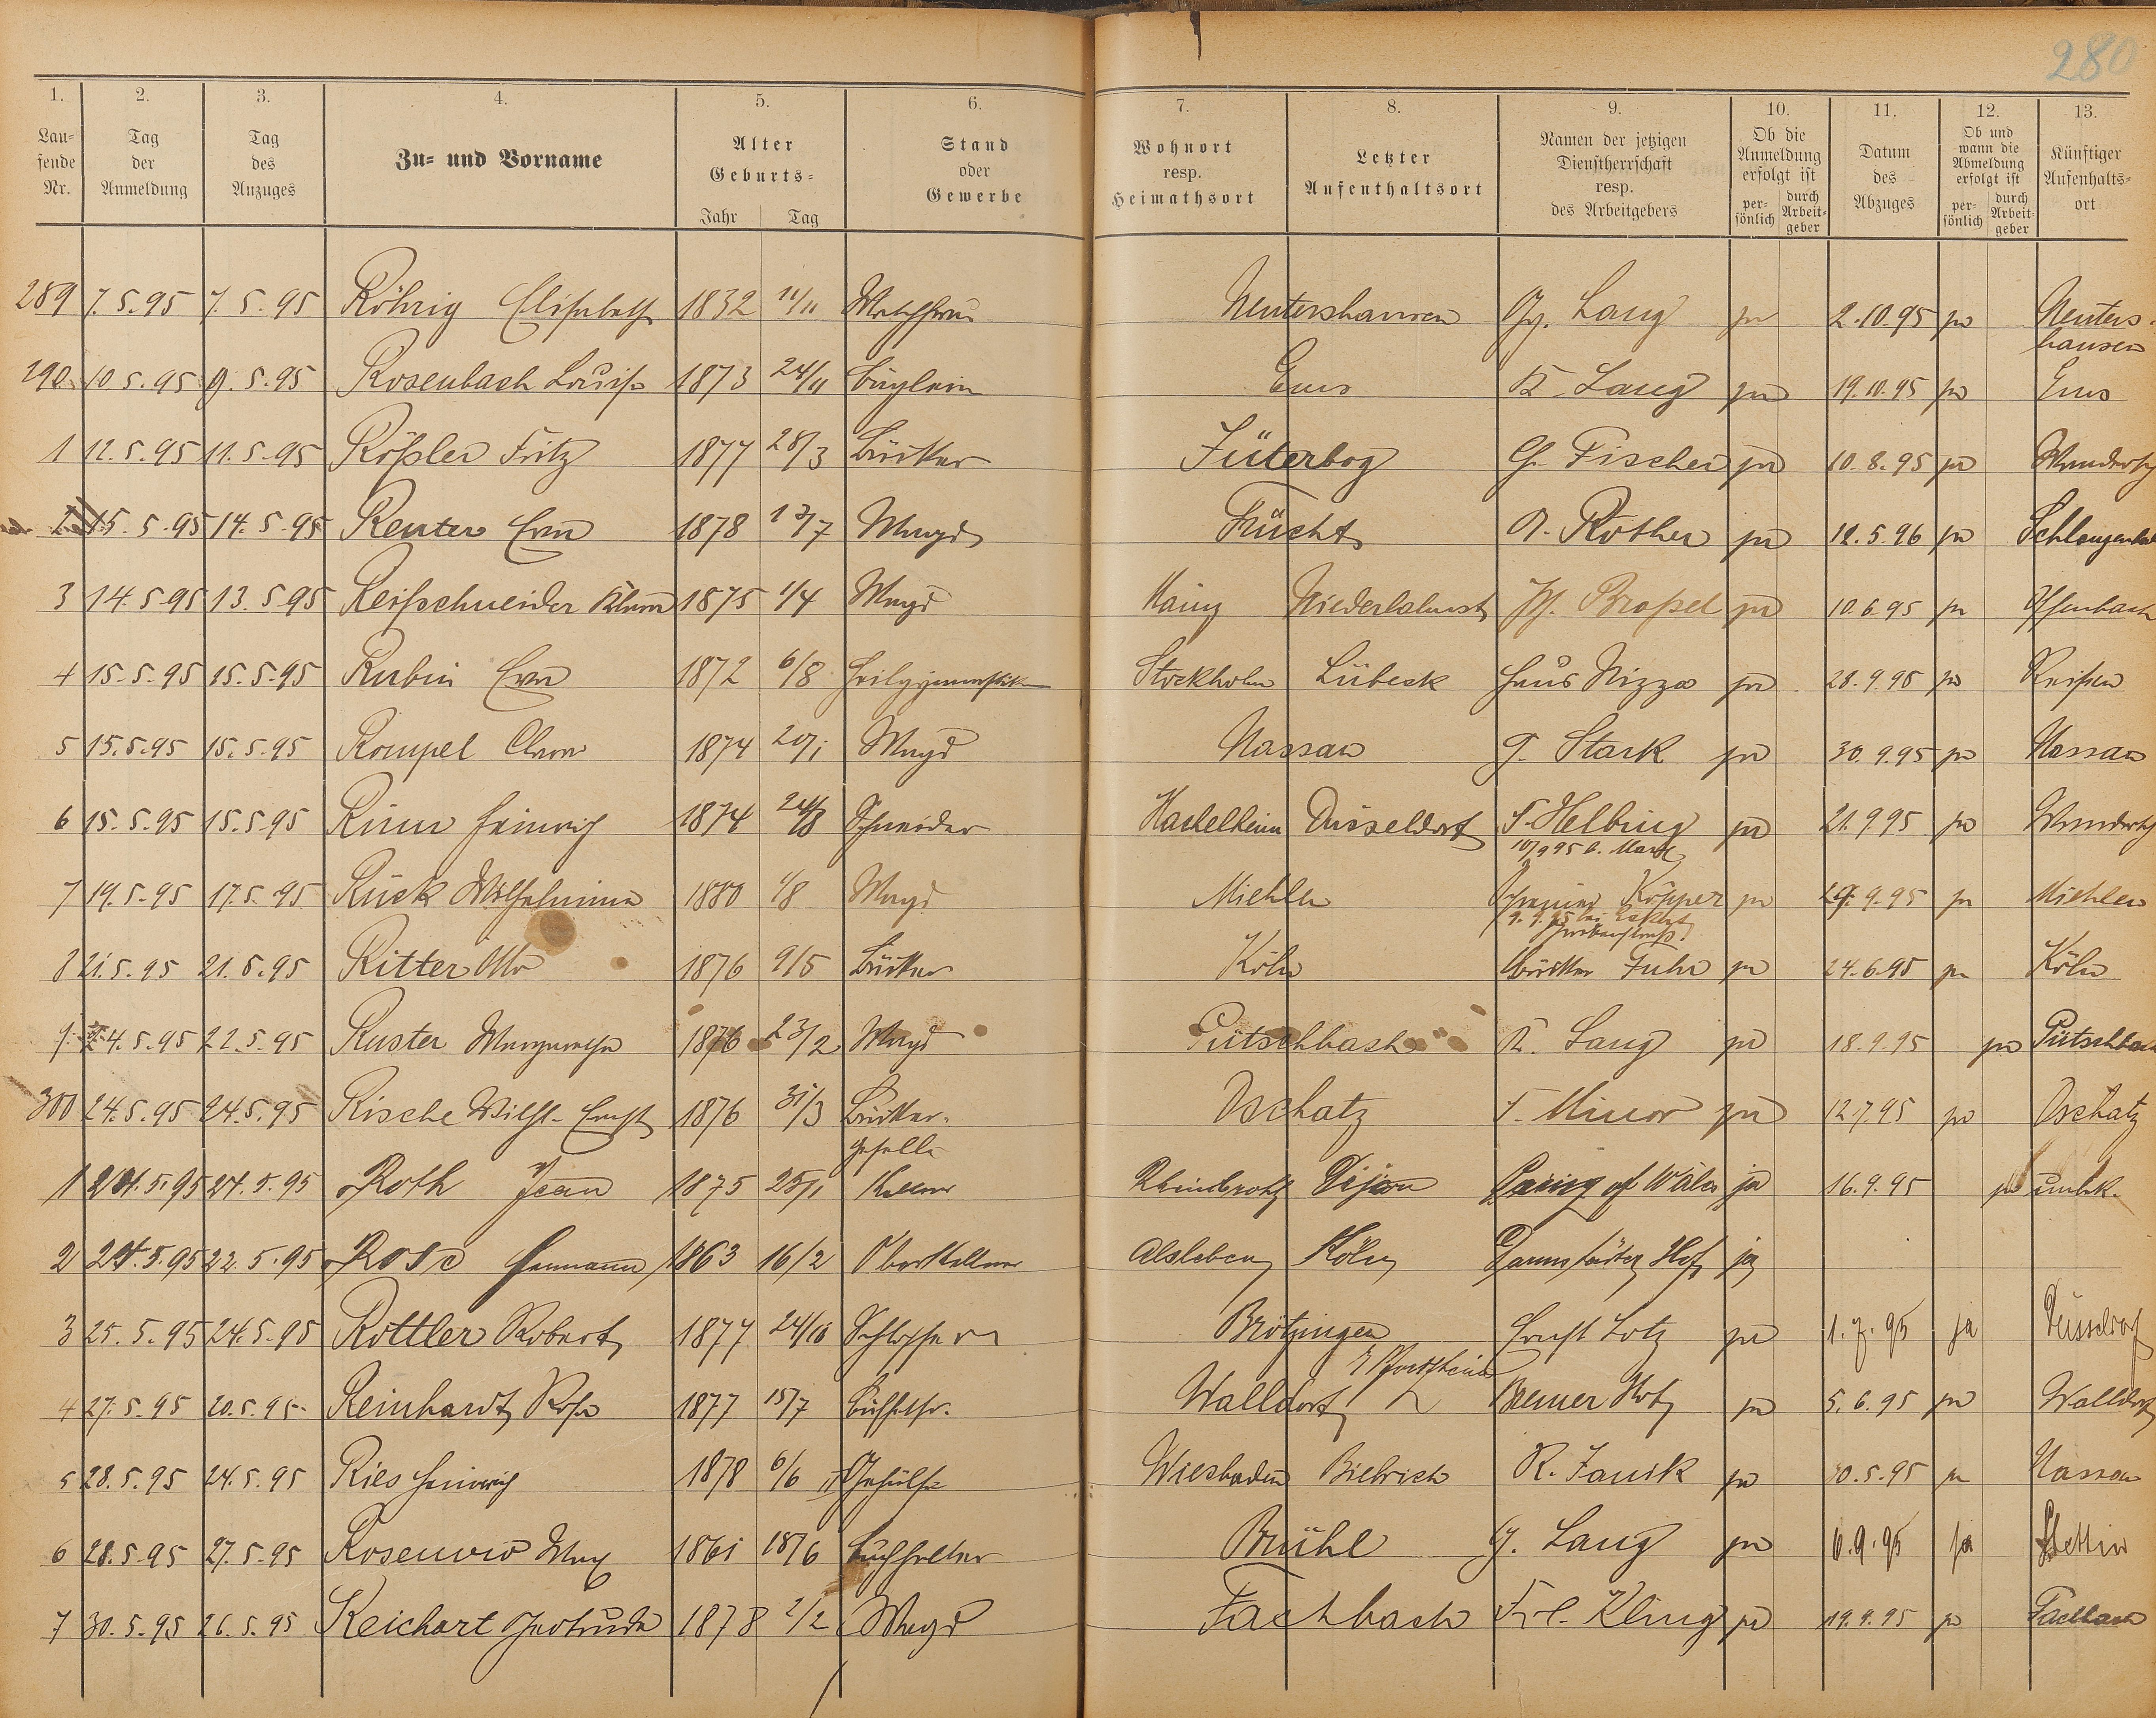 280
1. 2. 3. 4. 5. 6. 7. 8. 9. 10. 11. 12. 13.
Lau-fende Nr. Tag der Anmeldung Tag des Anzuges Zu- und Vorname Alter Geburts- Jahr Tag Stand oder Gewerbe Wohnort resp. Heimathsort Letzter Aufenthaltsort Namen der jetzigen Dienstherrschaft resp. des Arbeitgebers Ob die Anmeldung erfolgt ist per-sönlich durch Arbeit-geber Datum des Abzuges Ob und wann die Abmeldung erfolgt ist per-sönlich durch Arbeit-geber Künftiger Aufenhalts-ort
289 7.5.95 7.5.95 Röhrig Elisabeth 1832 11/11 Waschfrau Nentershausen Gg. Lang ja 2.10.95 ja Nenters-
hausen
290 10.5.95 9.5.95 Rosenbach Louise 1873 24/11 Büglerin Ems K. Lang ja 19.10.95 ja Ems
1 12.5.95 11.5.95 Rößler Fritz 1877 28/3 Bäcker Jüterbog G. Fischer ja 10.8.95 ja Wanderschaft
2 15.5.95 14.5.95 Reuter Eva 1878 Magd Frücht A. Rother ja 12.5.96 ja Schlangenbad
3 14.5.95 13.5.95 Reifschneider 1875 1/4 Magd Mainz Niederlahnst. ja 10.6.95 ja Offenbach
4 15.5.95 15.5.95 Rubin Eva 1872 6/8 Stockholm Lübeck Haus Nizza ja 28.9.95 ja Reisen
5 15.5.95 15.5.95 Rompel Clara 1874 20/1 Magd Nassau G. Stark ja 30.9.95 ja Nassau
6 15.5.95 15.5.95 Rinn Heinrich 1874 24/8 Schneider Düsseldorf F. Helbing ja 21.9.95 ja Wanderschaft
10/9 95 b. Marx
7 19.5.95 17.5.95 Rück Wilhelmina 1880 1/8 Magd Miehlen Schreiner Köpper ja 29.9.95 ja Miehlen
8 21.5.95 21.5.95 Ritter Otto 1876 9/5 Bäcker Köln Bäcker Fuhr ja 24.6.95 ja Köln
9 24.5.95 22.5.95 Ruster Margaretha 1876 23/2 Magd Pütschbach K. Lang ja 18.9.95 ja Pütschbach
300 24.5.95 24.5.95 Rische Wilh. Ernst 1876 31/3 Bäcker- Oschatz F. Minor ja 12.7.95 ja Oschatz
geselle
1 24.5.95 24.5.95 Roth Jean 1875 25/1 Kellner Rheinbrohl Dijon of Wales ja 16.9.95 ja unbk.
2 24.5.95 22.5.95 Rose Hermann 1863 16/2 Oberkellner Alsleben Köln Darmstädter Hof ja
3 25.5.95 24.5.95 Rottler Robert 1877 24/10 Schlosser Brötzingen Ernst Lotz ja 1.7.95 ja Düsseldorf
b/Pforzheim
4 27.5.95 20.5.95 Reinhardt Rosa 1877 15/7 Walldorf Bremer Hof ja 5.6.95 ja Walldorf
5 28.5.95 24.5.95 Ries Heinrich 1878 6/6 Gehülfe Wiesbaden Biebrich R. Janik ja 30.5.95 ja Nassau
6 28.5.95 27.5.95 Max 1861 18/6 Buchhalter Brühl G. Lang ja 6.9.95 ja Stettin
7 30.5.95 26.5.95 Reichart Gertruda 1878 2/2 Magd Fachbach Frl. Kling ja 19.9.95 ja Fachbach